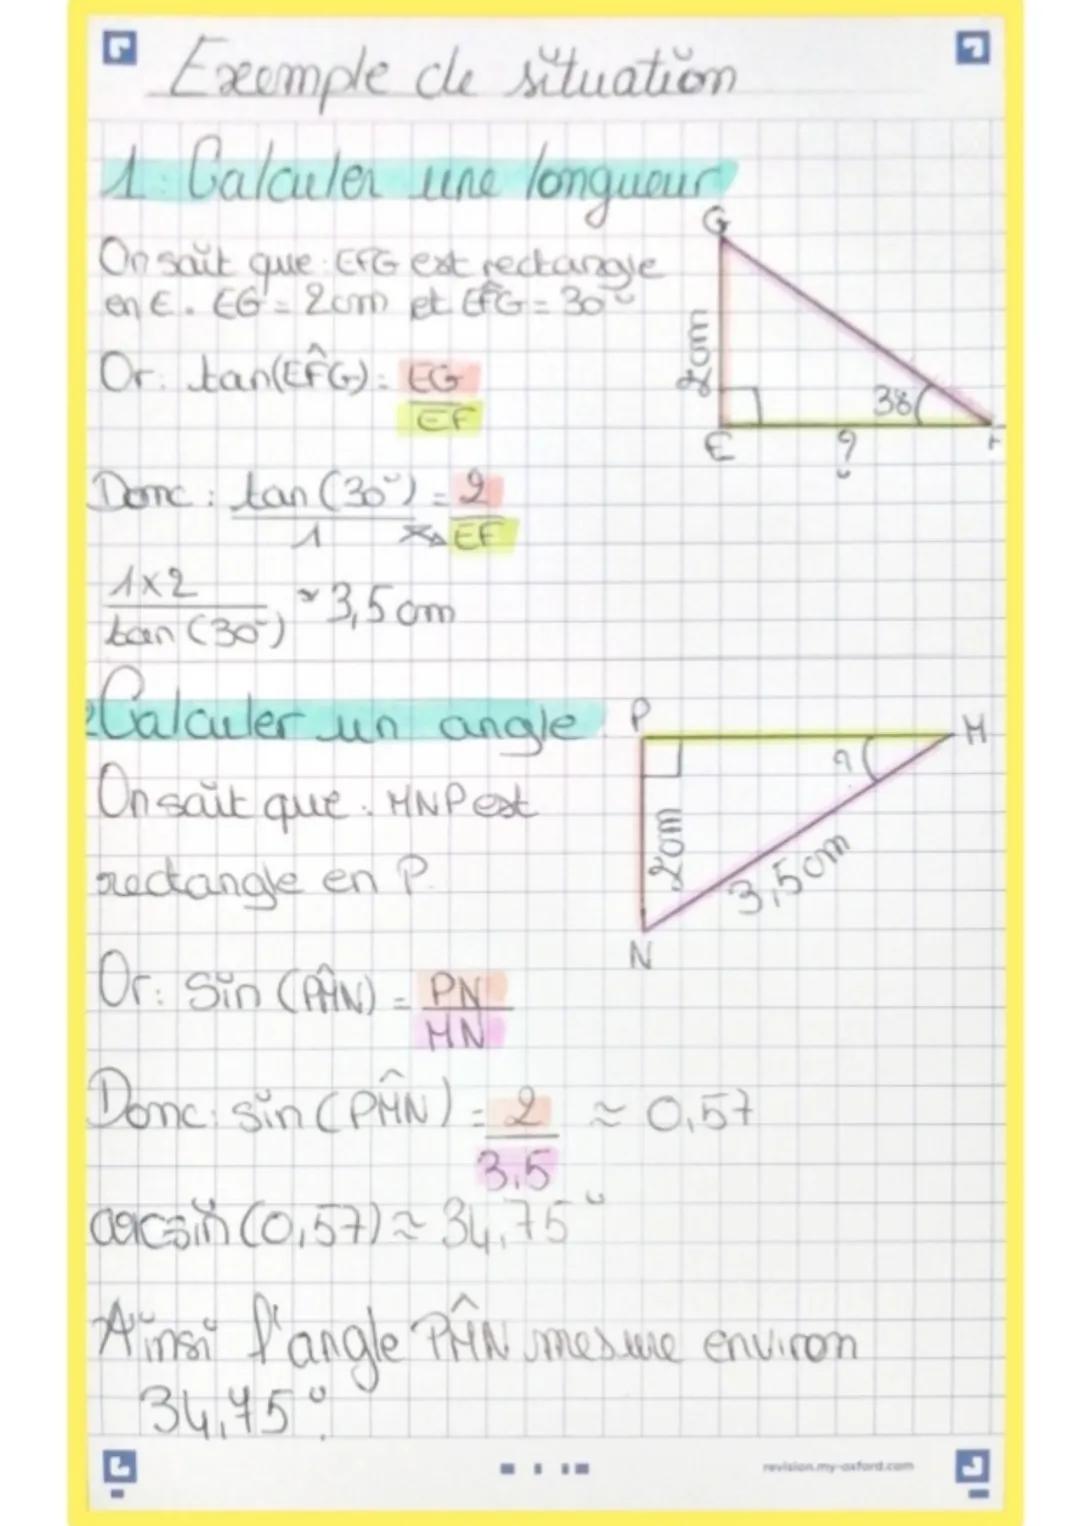 Exemple de situation
1. Calculer une longueur
G
On sait que : EFG est rectangle
en E. EG = 2cm et EF̂G = 30°
Or : tan(EF̂G) = EG
EF
2cm
38
E
?
F
Donc : tan (30°) = 2
1 EF
1x2 ≈ 3,5 cm
tan (30°)
2 Calculer un angle
P
M
?
On sait que : MNP est
rectangle en P.
2cm
3,5cm
N
Or : Sin (PM̂N) = PN
MN
Donc : sin (PM̂N) = 2 ≈ 0,57
3,5
arcsin (0,57) ≈ 34,75°
Ainsi l'angle PM̂N mesure environ
34,75°.
revision.my-oxford.com